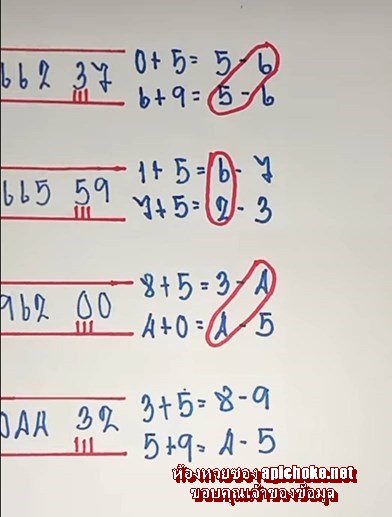 0+5= 5-6
662 37
6+9= 5-6
1+5= 6-7
665 59
7+5= 2-3
8+5= 3-4
962 00
4+0= 4-5
3+5= 8-9
044 32
5+9= 4-5
ห้องหวยซอง apichoke.net
ขอบคุณเจ้าของข้อมูล